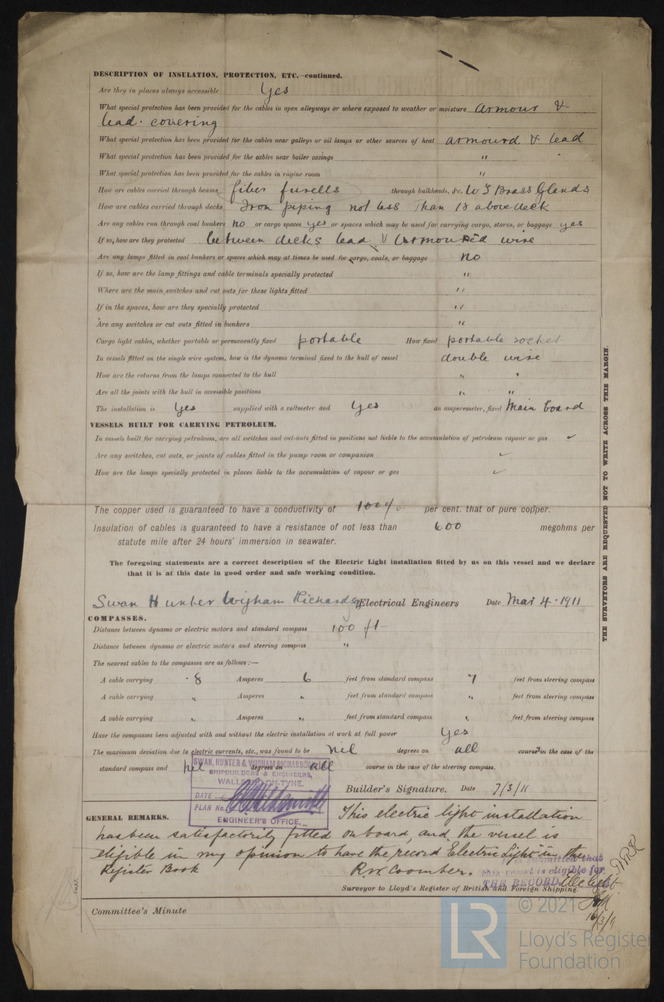 DESCRIPTION OF INSULATION, PROTECTION, ETC.—continued.
Are they in places always accessible Yes
What special protection has been provided for the cables in open alleyways or where exposed to weather or moisture armour &
lead. covering
What special protection has been provided for the cables near galleys or oil lamps or other sources of heat armourd & lead
What special protection has been provided for the cables near boiler casings "
What special protection has been provided for the cables in engine room "
How are cables carried through beams fiber furells through bulkheads, &c. W T Brass Glands
How are cables carried through decks Iron piping not less than 18 above deck
Are any cables run through coal bunkers no or cargo spaces yes or spaces which may be used for carrying cargo, stores, or baggage yes
If so, how are they protected between decks lead & armoured wire
Are any lamps fitted in coal bunkers or spaces which may at times be used for cargo, coals, or baggage no
If so, how are the lamp fittings and cable terminals specially protected "
Where are the main switches and cut outs for these lights fitted "
If in the spaces, how are they specially protected "
Are any switches or cut outs fitted in bunkers "
Cargo light cables, whether portable or permanently fixed portable How fixed portable socket
In vessels fitted on the single wire system, how is the dynamo terminal fixed to the hull of vessel double wire
How are the returns from the lamps connected to the hull " "
Are all the joints with the hull in accessible positions " "
The installation is Yes supplied with a voltmeter and Yes an amperemeter, fixed Main board
VESSELS BUILT FOR CARRYING PETROLEUM.
In vessels built for carrying petroleum, are all switches and cut-outs fitted in positions not liable to the accumulation of petroleum vapour or gas ✓
Are any switches, cut outs, or joints of cables fitted in the pump room or companion ✓
How are the lamps specially protected in places liable to the accumulation of vapour or gas ✓
The copper used is guaranteed to have a conductivity of 100% per cent. that of pure copper.
Insulation of cables is guaranteed to have a resistance of not less than 600 megohms per
statute mile after 24 hours' immersion in seawater.
The foregoing statements are a correct description of the Electric Light installation fitted by us on this vessel and we declare
that it is at this date in good order and safe working condition.
Swan Hunter Wigham Richardson Electrical Engineers Date Mar 4. 1911
COMPASSES.
Distance between dynamo or electric motors and standard compass 100 ft
Distance between dynamo or electric motors and steering compass "
The nearest cables to the compasses are as follows:—
A cable carrying .8 Amperes 6 feet from standard compass 7 feet from steering compass
A cable carrying " Amperes " feet from standard compass " feet from steering compass
A cable carrying " Amperes " feet from standard compass " feet from steering compass
Have the compasses been adjusted with and without the electric installation at work at full power Yes
The maximum deviation due to electric currents, etc., was found to be nil degrees on all course in the case of the
standard compass and nil degrees on all course in the case of the steering compass.
SWAN, HUNTER & WIGHAM RICHARDSON
SHIPBUILDERS & ENGINEERS,
WALLSEND-ON-TYNE.
DATE
PLAN No.
ENGINEER'S OFFICE.
Builder's Signature. Date 7/3/11
GENERAL REMARKS. This electric light installation
has been satisfactorily fitted onboard, and the vessel is
eligible in my opinion to have the record Electric Light in the
Register Book
R.W. Coomber.
Surveyor to Lloyd's Register of British and Foreign Shipping
submitted that
is eligible for
THE RECORD Elec light
16/3/11
Committee's Minute
THE SURVEYORS ARE REQUESTED NOT TO WRITE ACROSS THIS MARGIN.
© 2021
LR
Lloyd's Register
Foundation